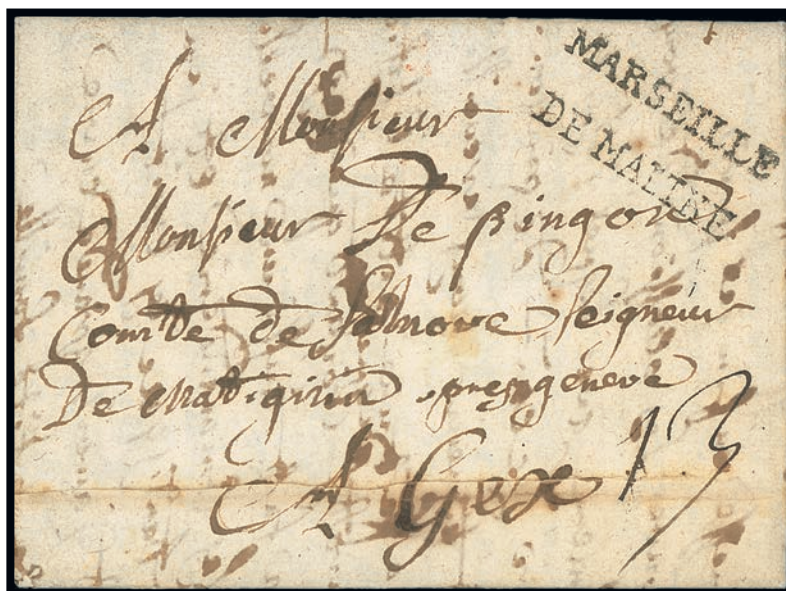 MARSEILLE
DE MALINE
A Monsieur
Monsieur De pingon
Comte de Salnove seigneur
De presgeneve
A Gex 13